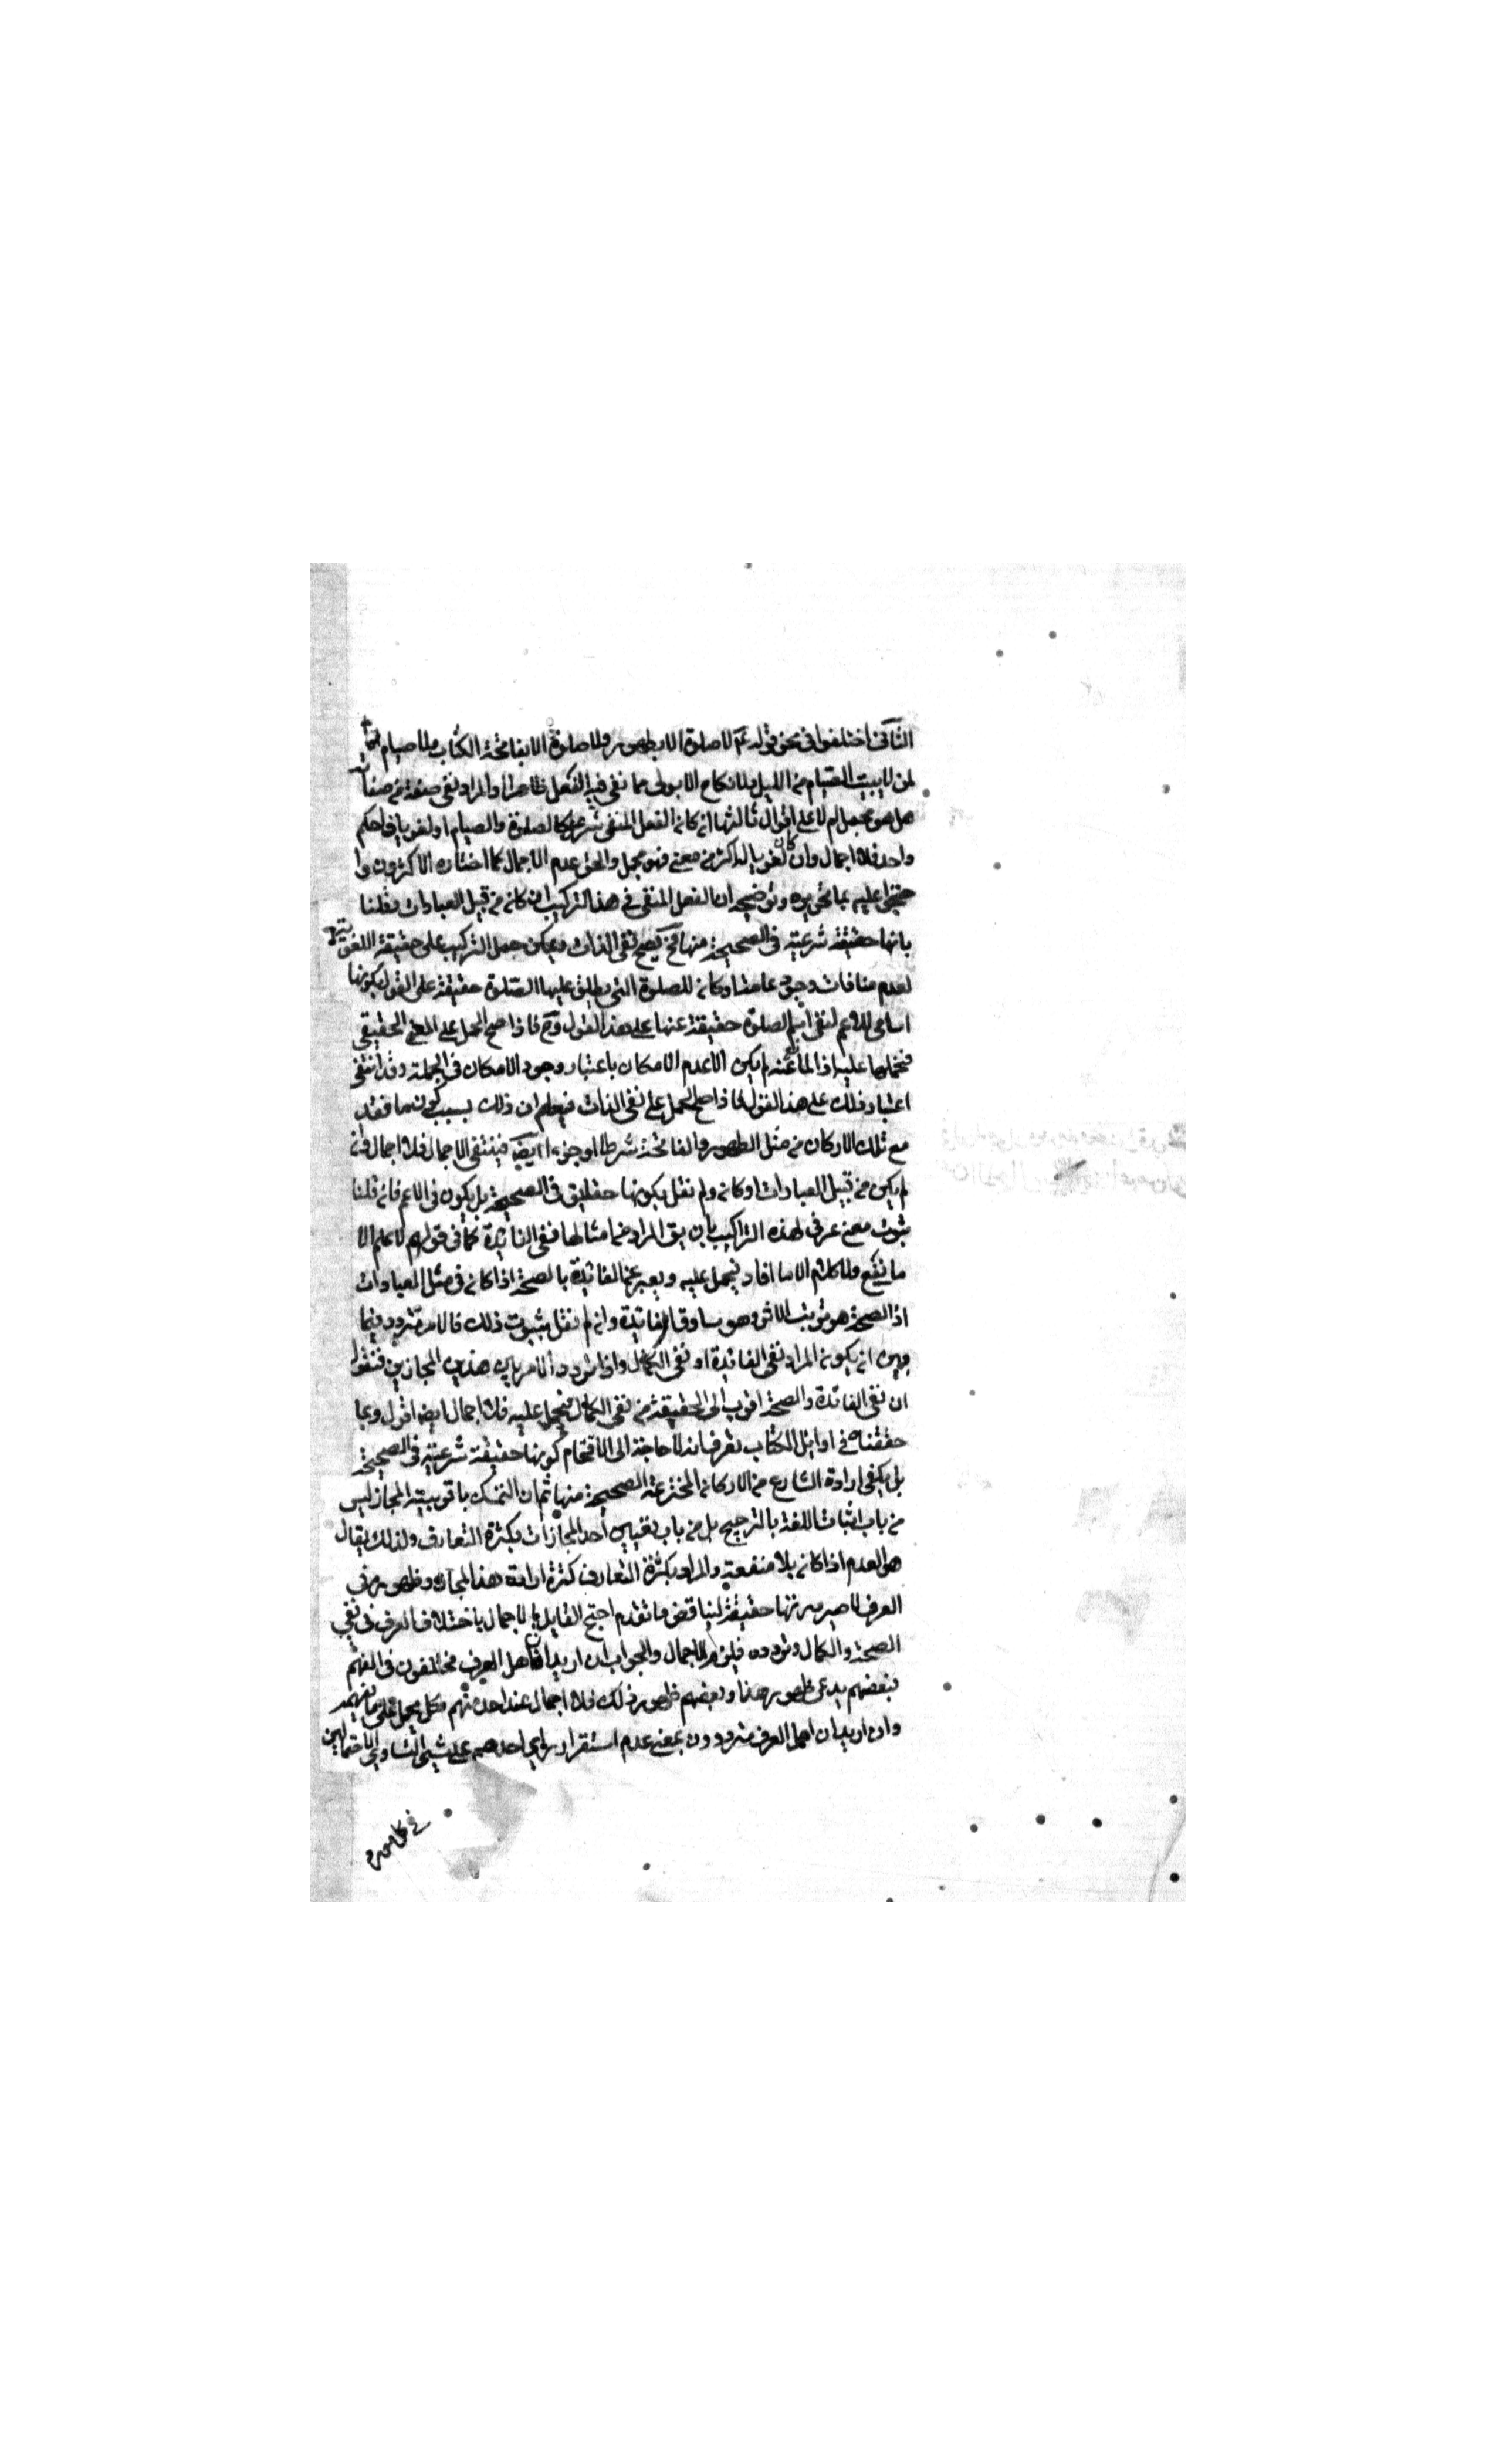 الثانى اختلفوا فى نحو قوله عم لا صلوة الا بطهور ولا صلوة الا بفاتحة الكتاب ولا صيام
لمن لا يبيت الصيام من الليل ولا نكاح الا بولى مما نفى فيه الفعل ظاهرا والمراد نفى صفة من صفاته
هل هو مجمل ام لا على اقوال ثالثها ان كان الفعل المنفى شرعيا كالصلوة والصيام او لغويا ذا حكم
واحد فلا اجمال وان كان لغويا له اكثر من معنى فهو مجمل والحق عدم الاجمال كما اختاره الاكثرون وا
حتجوا عليه بما تحريره وتوضيحه ان الفعل المنفى فى هذا التركيب ان كان من قبيل العبادات وقلنا
بانها حقيقة شرعية فى الصحيحة منها فح يصح نفى الذات ويمكن حمل التركيب على حقيقة اللغوية
لعدم منافات وجود عامة اركان للصلوة التى يطلق عليها الصلوة حقيقة على القول بكونها
اسامى للاعم لنفى اسم الصلوة حقيقة عنها على هذا القول وح فاذا صح الحمل على المعنى الحقيقى
فنحملها عليه اذ المانع عنه لم يكن الا عدم الامكان باعتبار وجود الاركان فى الجملة وقد انتفى
اعتبار ذلك على هذا القول فاذا صح الحمل على نفى الذات فيعلم ان ذلك بسبب كون ما فقد
مع تلك الاركان من مثل الطهور والفاتحة شرطا او جزءا ايضا فينتفى الاجمال فلا اجمال وان
لم يكن من قبيل العبادات او كان ولم نقل بكونها حقايق فى الصحيحة بل يكون فى الاعم فان قلنا
بثبوت معنى عرفى لهذه التراكيب بان يق المراد من امثالها نفى الفائدة كما فى قولهم لا علم الا
ما نفع ولا كلام الا ما افاد فيحمل عليه ويعبر عن الفائدة بالصحة اذا كان فى مثل العبادات
اذ الصحة هو ترتب الاثر وهو مساوق للفائدة وان لم نقل بثبوت ذلك فالامر متردد فيما
بين ان يكون المراد نفى الفائدة او نفى الكمال واذا تردد الامر بين هذين المجازين فنقول
ان نفى الفائدة والصحة اقرب الى الحقيقة من نفى الكمال فيحمل عليه فلا اجمال ايضا اقول وبما
حققناه فى اوايل الكتاب تعرف انه لا حاجة الى الاقتحام كونها حقيقة شرعية فى الصحيحة
بل يكفى ارادة الشارع من الاركان المخترعة الصحيحة منها ثم ان التمسك باقربية المجاز ليس
من باب اثبات اللغة بالترجيح بل من باب تعيين احد المجازات بكثرة التعارف ولذلك يقال
هو العدم اذا كان بلا منفعة والمراد بكثرة التعارف كثرة ارادة هذا المجاز وظهوره فى
العرف لا صيرورتها حقيقة ليناقض ما تقدم احتج القايل بالاجمال باختلاف العرف فى نفى
الصحة والكمال وتردده فيلزم الاجمال والجواب ان اريد ان اهل العرف مختلفون فى الفهم
فبعضهم يدعى ظهور هذا وبعضهم ظهور ذلك فلا اجمال عند احد منهم فكل يحمل على ما يفهمه
وان اريد ان اهل العرف مترددون بمعنى عدم استقرار راى احدهم على شىء لتساوى الاحتمالين